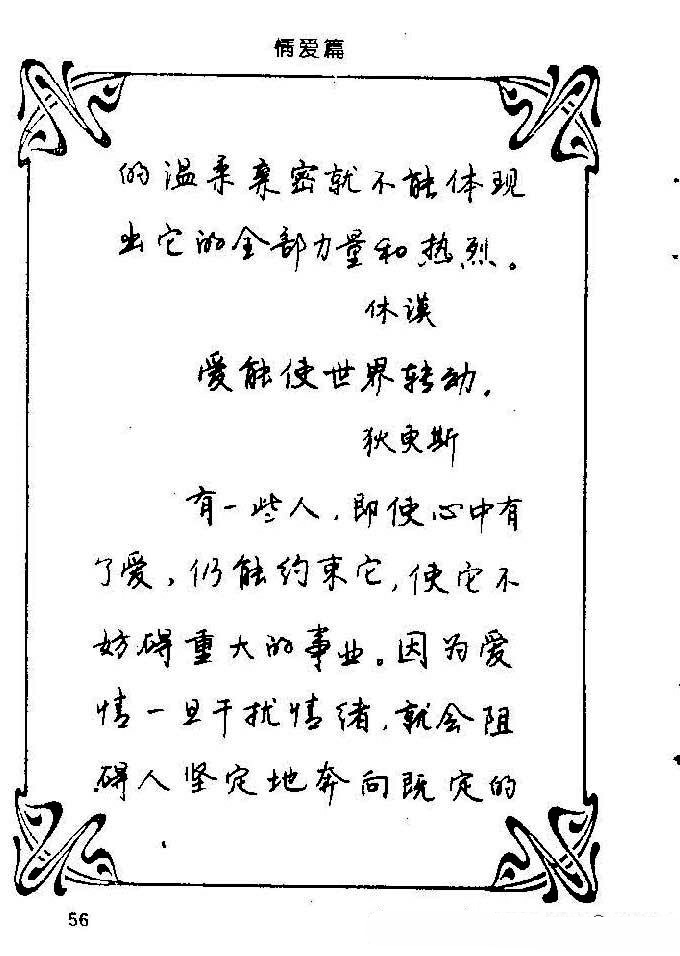 情爱篇
的温柔亲密就不能体现
出它的全部力量和热烈。
休谟
爱能使世界转动。
狄更斯
有一些人，即使心中有
了爱，仍能约束它，使它不
妨碍重大的事业。因为爱
情一旦干扰情绪，就会阻
碍人坚定地奔向既定的
56